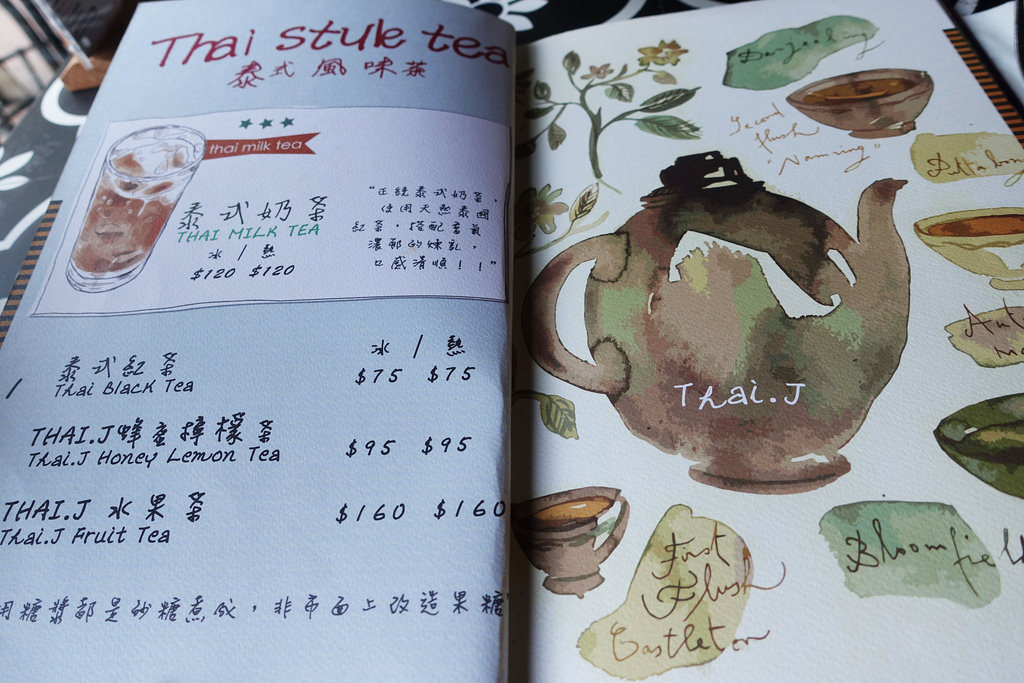 Thai style tea
泰式風味茶
thai milk tea
泰式奶茶
THAI MILK TEA
冰 / 熱
$120 $120
"正統泰式奶茶，
使用天然泰國
紅茶，搭配香氣
濃郁的煉乳，
口感滑順！！"
冰 / 熱
泰式紅茶 $75 $75
Thai Black Tea
THAI.J 蜂蜜檸檬茶 $95 $95
Thai.J Honey Lemon Tea
THAI.J 水果茶 $160 $160
Thai.J Fruit Tea
用糖漿都是砂糖煮成，非市面上改造果糖
Darjeeling
Second
flush
"Namring"
Thai.J
First
Flush
Castleton
Bloomfield